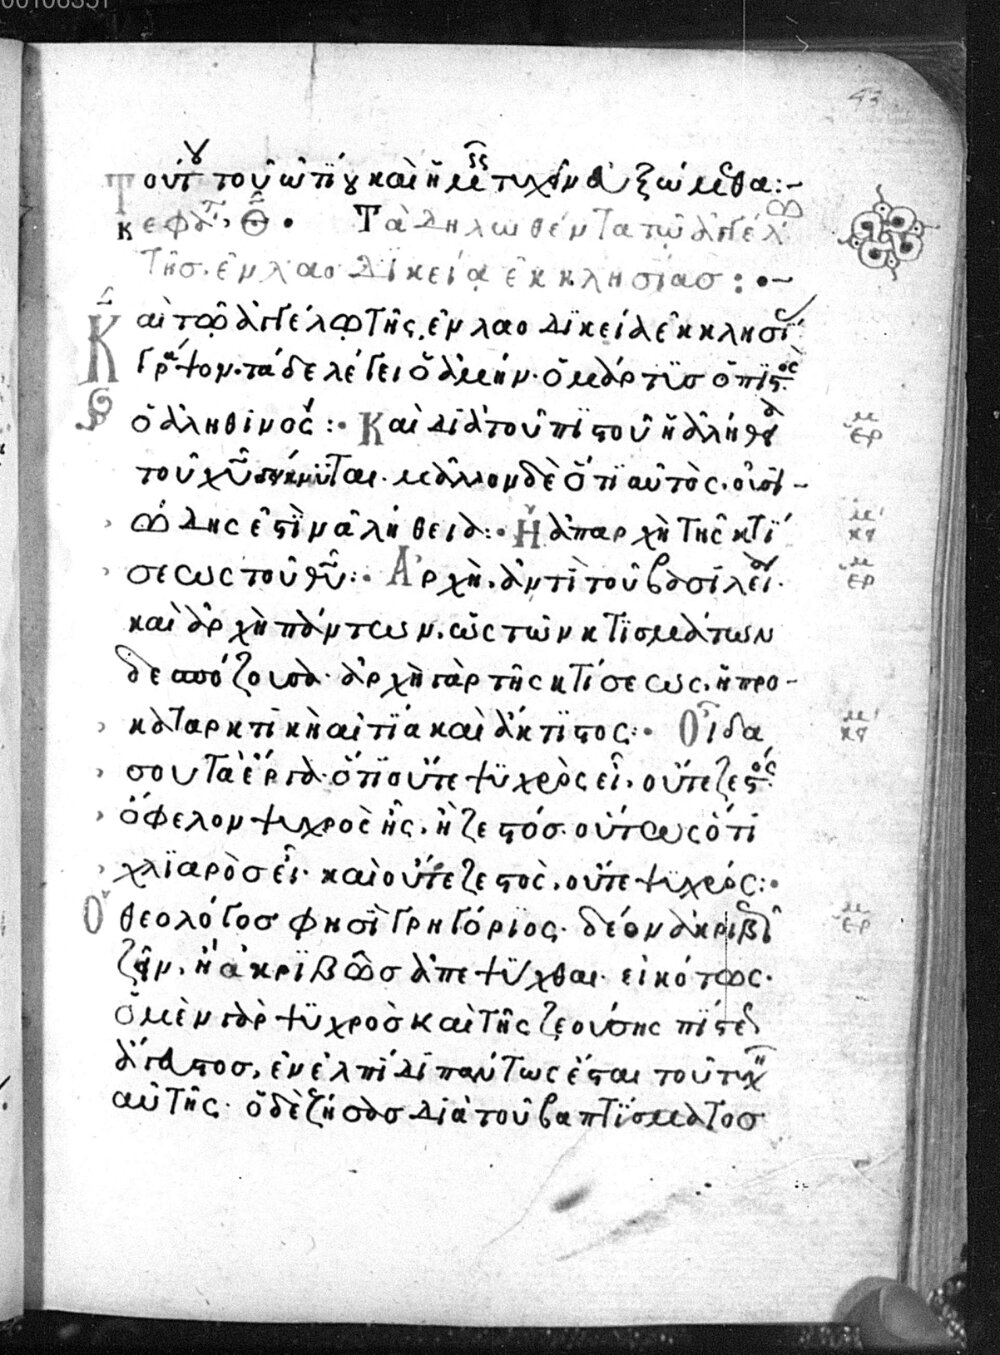 43
τούτ τοῦ ὠτίου καὶ ἡμᾶς τυχεῖν ἀξιώμεθα:~
κεφάλ Θ. Τὰ δηλωθέντα τῷ ἀγγέλ
τῆς ἐν λαοδικείᾳ ἐκκλησίας:•~
Καὶ τῷ ἀγγέλῳ τῆς ἐν λαοδικείᾳ ἐκκλησί
γράψον· τάδε λέγει ὁ ἀμήν· ὁ μάρτϊς ὁ πϊστος
ὁ ἀληθινός:• Καὶ διὰ τοῦ πιστοῦ ἡ ἀλήθ
τοῦ χῦ· μᾶλλον δὲ ὅτι αὐτὸς, οὐσι-
ώδης ἐστὶν ἀλήθεια:• Ἡ ἀπαρχὴ τῆς κτί
σεως τοῦ θῦ:• Ἀρχὴ, ἀντὶ τοῦ βασιλεύ
καὶ ἀρχὴ πάντων, ὡς τῶν κτισμάτων
δεσπόζουσα· ἀρχὴ γὰρ τῆς κτίσεως, ἡ προ-
καταρκτικὴ αἰτία καὶ ἄκτιστος:• Οἶδα
σου τὰ ἔργα· ὅτι οὔτε ψυχρὸς εἶ, οὔτε ζεστός
ὄφελον ψυχρὸς ἦς, ἢ ζεστόσ· οὕτως ὅτι
χλϊαρὸσ εἶ· καὶ οὔτε ζεστὸς, οὔτε ψυχρός:•
Ὁ θεολόγοσ φησὶ Γρηγόριος· δέον ἀκριβῶ
ζῆν, ἢ ἀκριβῶσ ἀπεψύχθαι· εἰκότως·
ὁ μὲν γὰρ ψυχρὸσ καὶ τῆς ζεούσης πίστε
ἄγευστοσ, ἐν ἐλπίδι πάντως ἔσται τοῦ τυχ
αὐτῆς· ὁ δὲ ζήσασ διὰ τοῦ βαπτίσματοσ